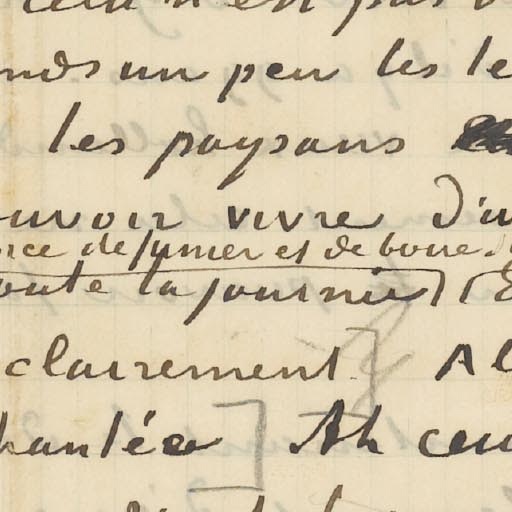 n'est pas
un peu les le
les paysans
ouvoir vivre d'u
de fumier et de boue
toute la journée) (
clairement] Al
hantée] Ah ceu